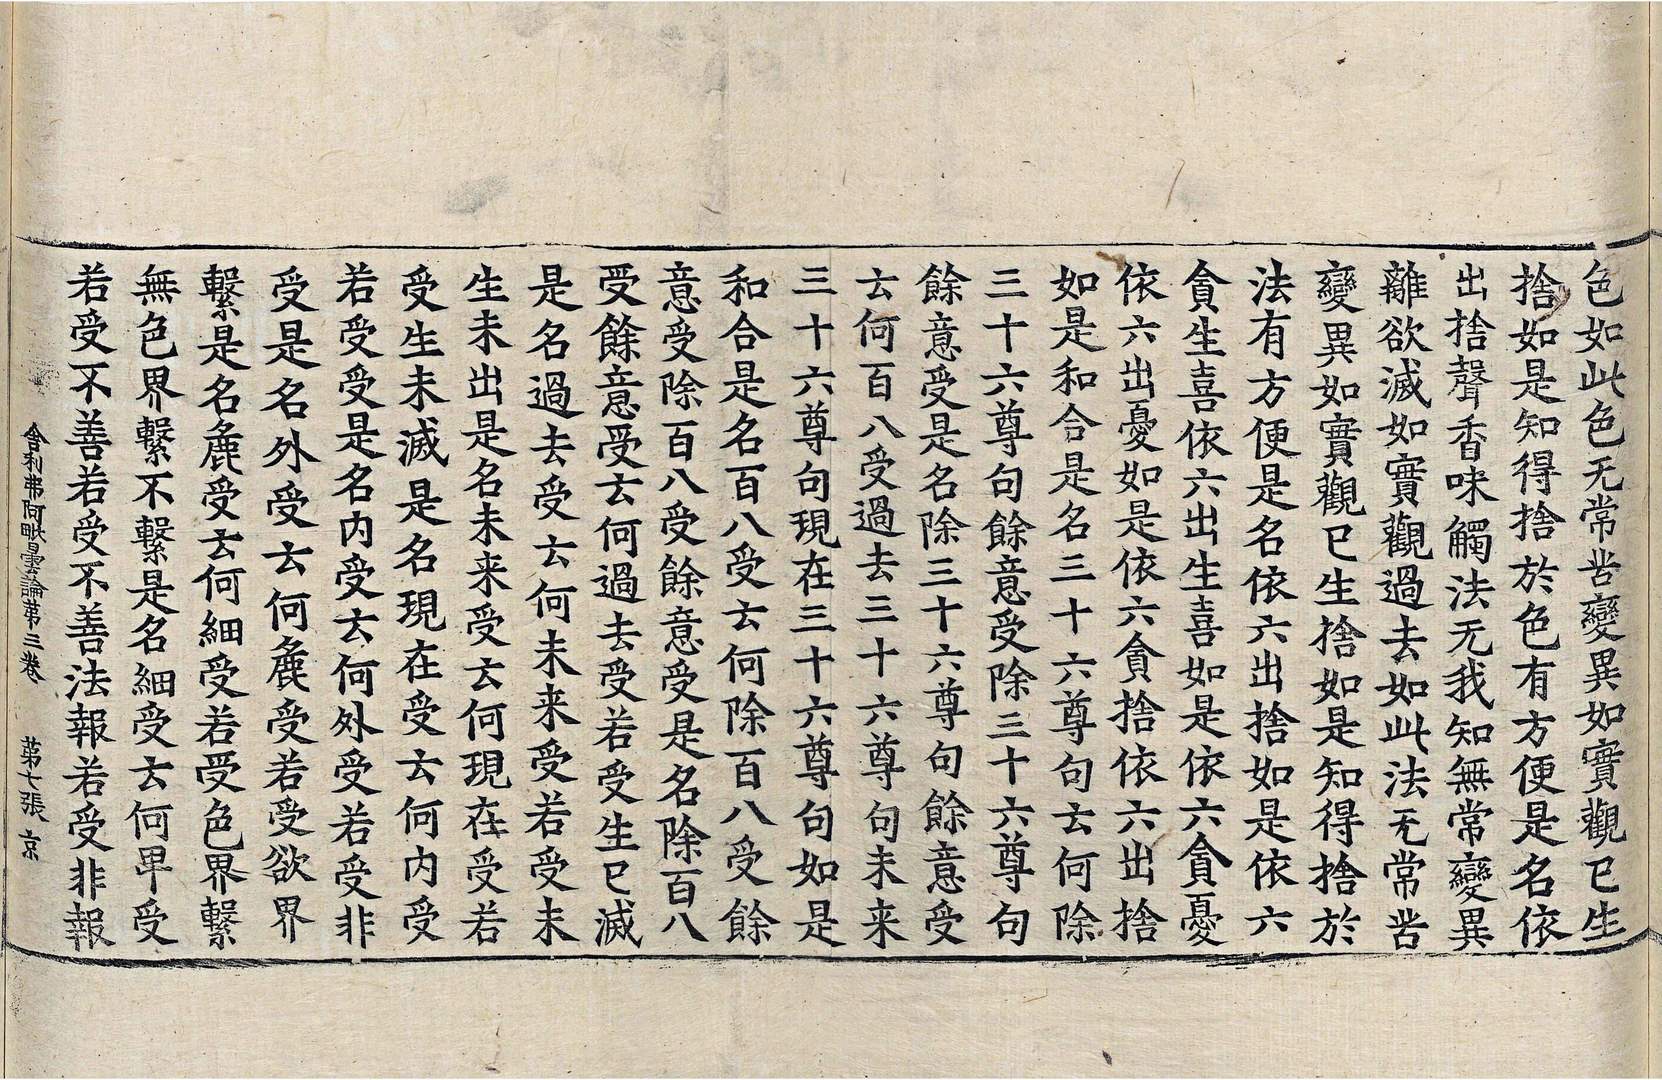 色如此色无常苦變異如實觀已生
捨如是知得捨於色有方便是名依
出捨聲香味觸法无我知無常變異
離欲滅如實觀過去如此法无常苦
變異如實觀已生捨如是知得捨於
法有方便是名依六出捨如是依六
貪生喜依六出生喜如是依六貪憂
依六出憂如是依六貪捨依六出捨
如是和合是名三十六尊句云何除
三十六尊句餘意受除三十六尊句
餘意受是名除三十六尊句餘意受
云何百八受過去三十六尊句未来
三十六尊句現在三十六尊句如是
和合是名百八受云何除百八受餘
意受除百八受餘意受是名除百八
受餘意受云何過去受若受生已滅
是名過去受云何未来受若受未
生未出是名未来受云何現在受若
受生未滅是名現在受云何內受
若受受是名內受云何外受若受非
受是名外受云何麁受若受欲界
繫是名麁受云何細受若受色界繫
無色界繫不繫是名細受云何卑受
若受不善若受不善法報若受非報
舍利弗阿毗曇論第三卷 第七張 京